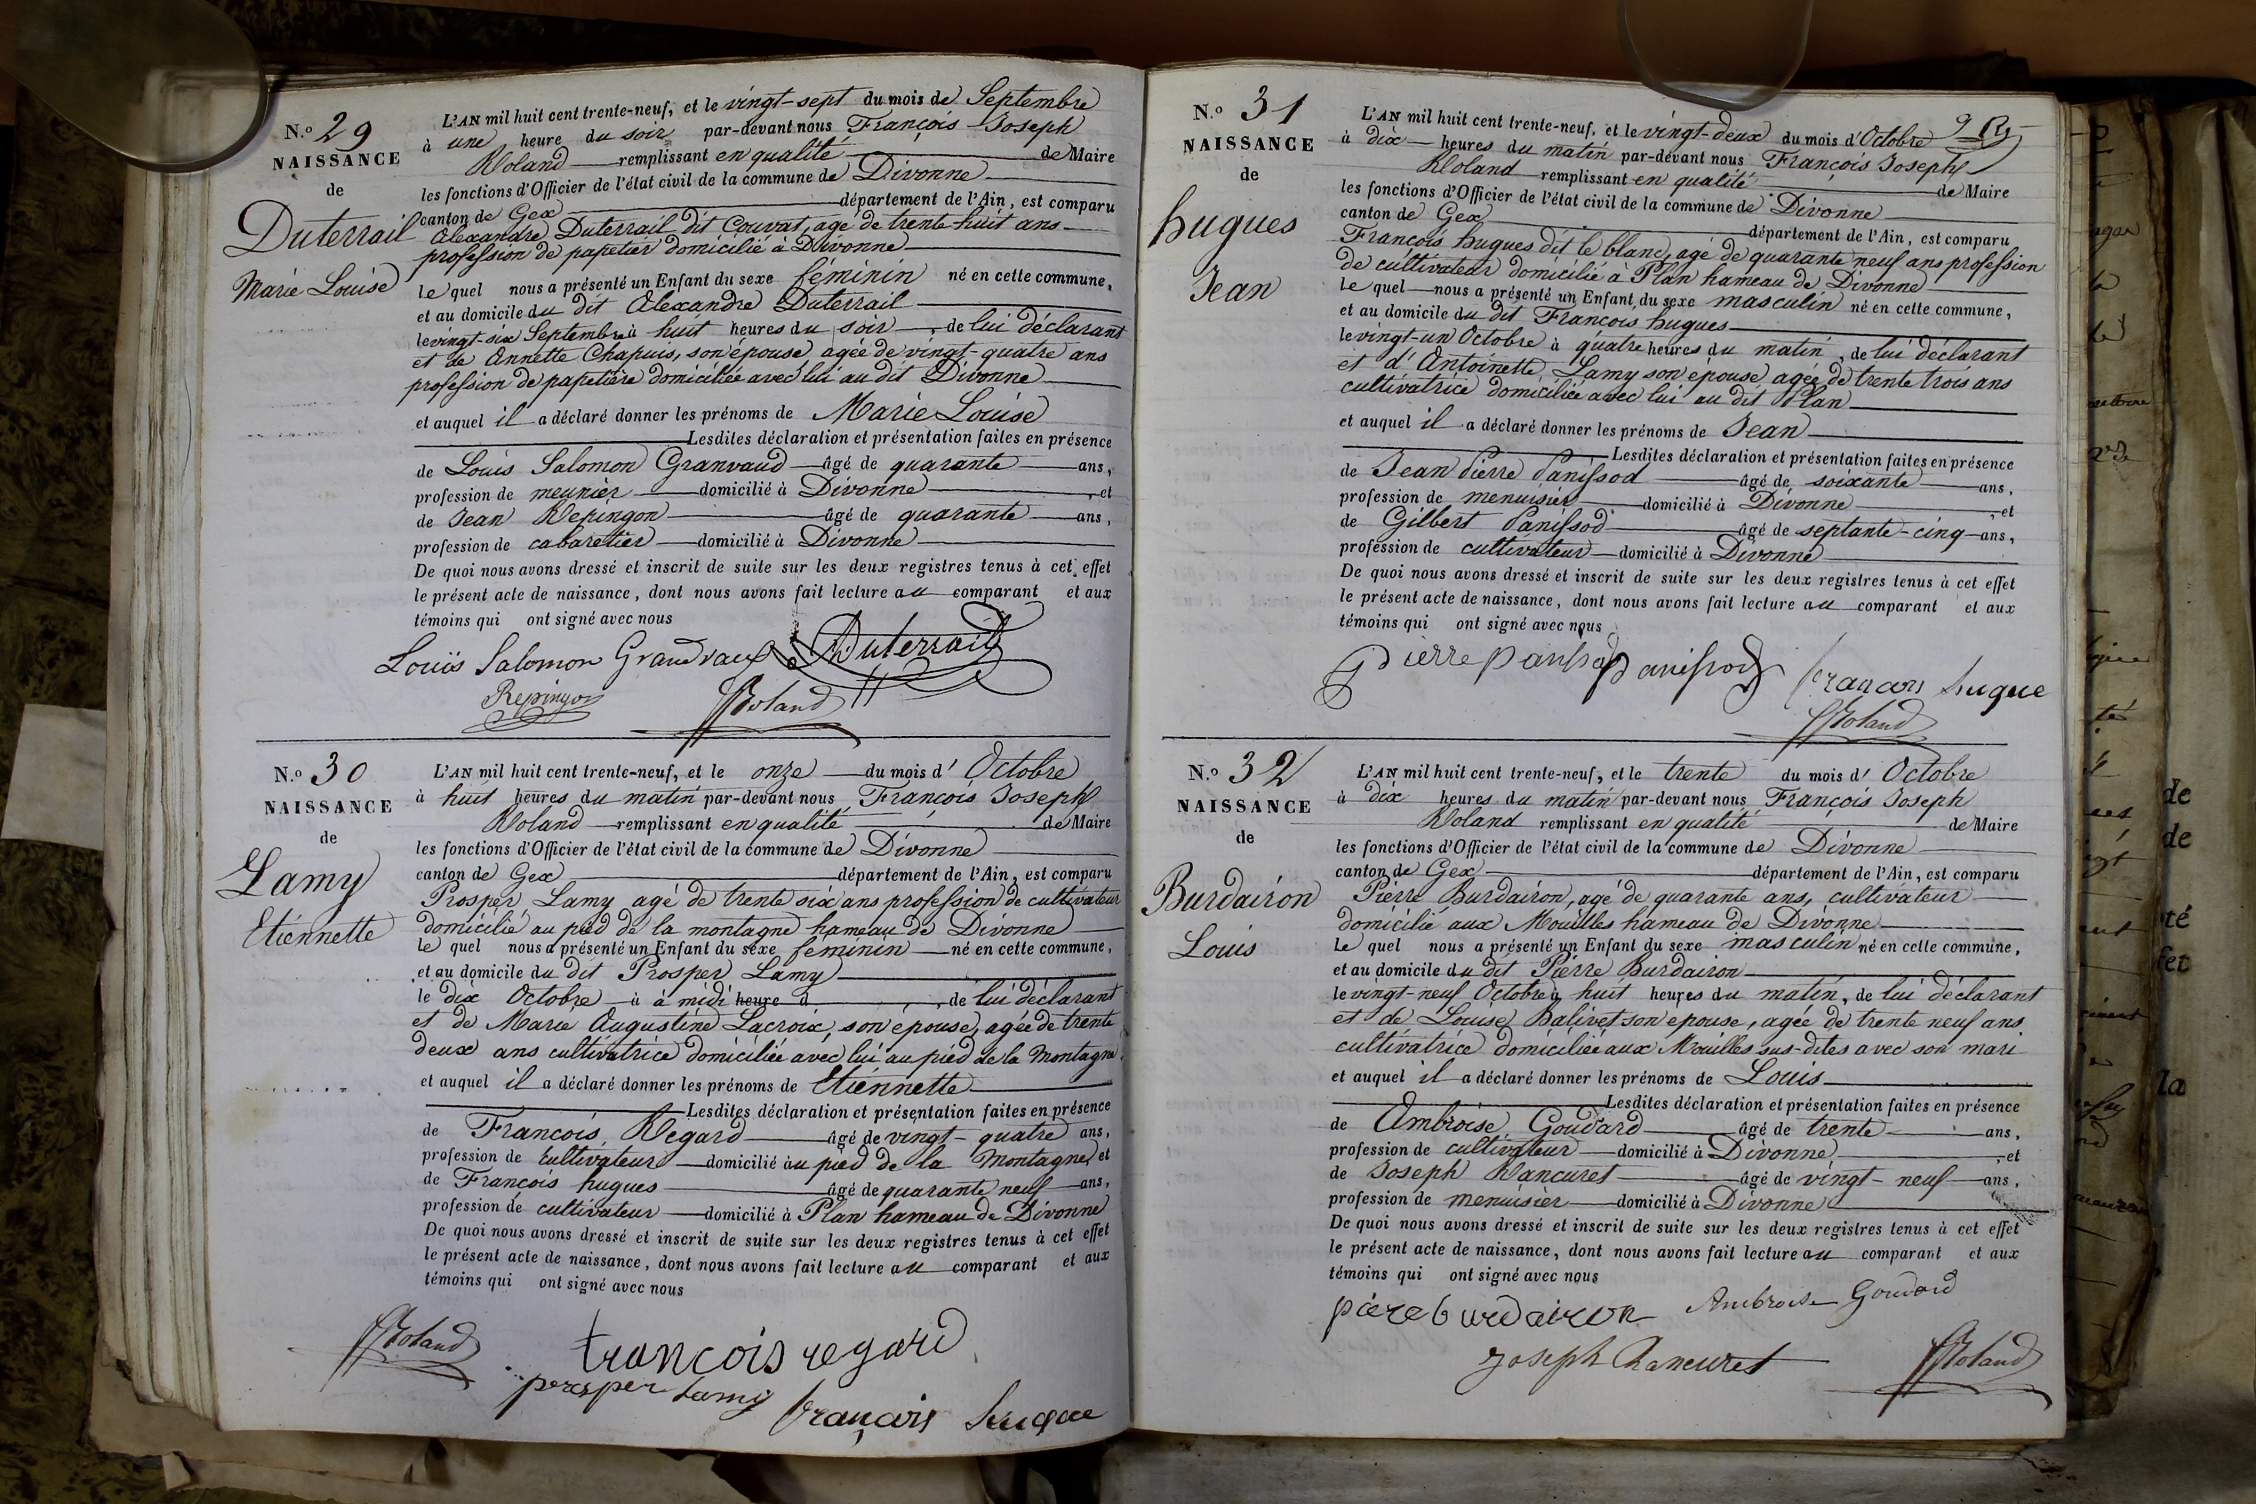 N.o 29
NAISSANCE
de
Duterrail
Marie Louise
L'AN mil huit cent trente-neuf, et le vingt-sept du mois de Septembre
à une heure du soir par-devant nous François Joseph
Roland remplissant en qualité de Maire
les fonctions d'Officier de l'état civil de la commune de Divonne
canton de Gex département de l'Ain, est comparu
Alexandre Duterrail dit Couvat, agé de trente huit ans
profession de papetier domicilié à Divonne
le quel nous a présenté un Enfant du sexe féminin né en cette commune,
et au domicile du dit Alexandre Duterrail
le vingt-six Septembre à huit heures du soir, de lui déclarant
et de Annette Chapuis, son épouse, agée de vingt-quatre ans
profession de papetière domiciliée avec lui au dit Divonne
et auquel il a déclaré donner les prénoms de Marie Louise
Lesdites déclaration et présentation faites en présence
de Louis Salomon Granvaud âgé de quarante ans,
profession de meunier domicilié à Divonne, et
de Jean Repingon âgé de quarante ans,
profession de cabaretier domicilié à Divonne
De quoi nous avons dressé et inscrit de suite sur les deux registres tenus à cet effet
le présent acte de naissance, dont nous avons fait lecture au comparant et aux
témoins qui ont signé avec nous
Louis Salomon Grandvaux Duterrail
Repingon Roland
N.o 30
NAISSANCE
de
Lamy
Etiennette
L'AN mil huit cent trente-neuf, et le onze du mois d'Octobre
à huit heures du matin par-devant nous François Joseph
Roland remplissant en qualité de Maire
les fonctions d'Officier de l'état civil de la commune de Divonne
canton de Gex département de l'Ain, est comparu
Prosper Lamy agé de trente six ans profession de cultivateur
domicilié au pied de la montagne hameau de Divonne
le quel nous a présenté un Enfant du sexe féminin né en cette commune,
et au domicile du dit Prosper Lamy
le dix Octobre à à midi heure d, de lui déclarant
et de Marie Augustine Lacroix, son épouse, agée de trente
deux ans cultivatrice domiciliée avec lui au pied de la Montagne
et auquel il a déclaré donner les prénoms de Etiennette
Lesdites déclaration et présentation faites en présence
de François Regard âgé de vingt-quatre ans,
profession de cultivateur domicilié au pied de la Montagne et
de François hugues âgé de quarante neuf ans,
profession de cultivateur domicilié à Plan hameau de Divonne
De quoi nous avons dressé et inscrit de suite sur les deux registres tenus à cet effet
le présent acte de naissance, dont nous avons fait lecture au comparant et aux
témoins qui ont signé avec nous
Roland françois regard
prosper Lamy françois hugue
N.o 31
NAISSANCE
de
hugues
Jean
L'AN mil huit cent trente-neuf, et le vingt-deux du mois d'Octobre
à dix heures du matin par-devant nous François Joseph
Roland remplissant en qualité de Maire
les fonctions d'Officier de l'état civil de la commune de Divonne
canton de Gex département de l'Ain, est comparu
François hugues dit le blanc, agé de quarante neuf ans profession
de cultivateur domicilié à Plan hameau de Divonne
le quel nous a présenté un Enfant du sexe masculin né en cette commune,
et au domicile du dit François hugues
le vingt-un Octobre à quatre heures du matin, de lui déclarant
et d'Antoinette Lamy son épouse, agée de trente trois ans
cultivatrice domiciliée avec lui au dit Plan
et auquel il a déclaré donner les prénoms de Jean
Lesdites déclaration et présentation faites en présence
de Jean Pierre Panissod âgé de soixante ans,
profession de menuisier domicilié à Divonne, et
de Gilbert Panissod âgé de septante-cinq ans,
profession de cultivateur domicilié à Divonne
De quoi nous avons dressé et inscrit de suite sur les deux registres tenus à cet effet
le présent acte de naissance, dont nous avons fait lecture au comparant et aux
témoins qui ont signé avec nous
pierre panissod panissod françois hugue
Roland
N.o 32
NAISSANCE
de
Burdairon
Louis
L'AN mil huit cent trente-neuf, et le trente du mois d'Octobre
à dix heures du matin par-devant nous François Joseph
Roland remplissant en qualité de Maire
les fonctions d'Officier de l'état civil de la commune de Divonne
canton de Gex département de l'Ain, est comparu
Pierre Burdairon, agé de quarante ans, cultivateur
domicilié aux Mouilles hameau de Divonne
le quel nous a présenté un Enfant du sexe masculin né en cette commune,
et au domicile du dit Pierre Burdairon
le vingt-neuf Octobre à huit heures du matin, de lui déclarant
et de Louise Balivet son epouse, agée de trente neuf ans
cultivatrice domiciliée aux Mouilles sus-dites avec son mari
et auquel il a déclaré donner les prénoms de Louis
Lesdites déclaration et présentation faites en présence
de Ambroise Goudard âgé de trente ans,
profession de cultivateur domicilié à Divonne, et
de Joseph Rancuret âgé de vingt-neuf ans,
profession de menuisier domicilié à Divonne
De quoi nous avons dressé et inscrit de suite sur les deux registres tenus à cet effet
le présent acte de naissance, dont nous avons fait lecture au comparant et aux
témoins qui ont signé avec nous
piere burdairon Ambroise Goudard
joseph Rancuret Roland
de
de
té
fet
la